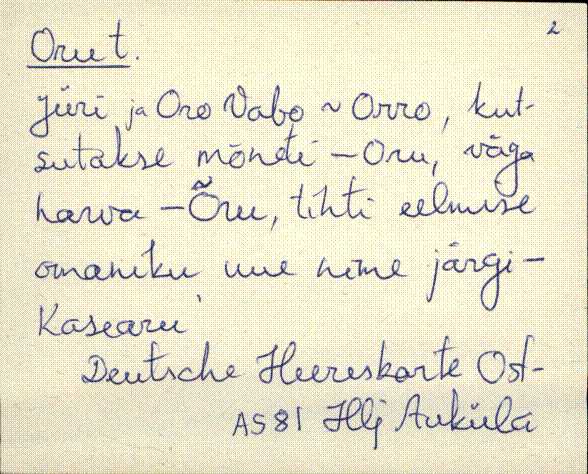 2
Oru t.
Jüri ja Oro Vabo ~ Orro, kut-
sutakse mõneti - Oru, väga
harva - Õru, tihti eelmise
omaniku uue nime järgi -
Kasearu
Deutsche Heereskarte Ost-
AS81 Hlj Auküla